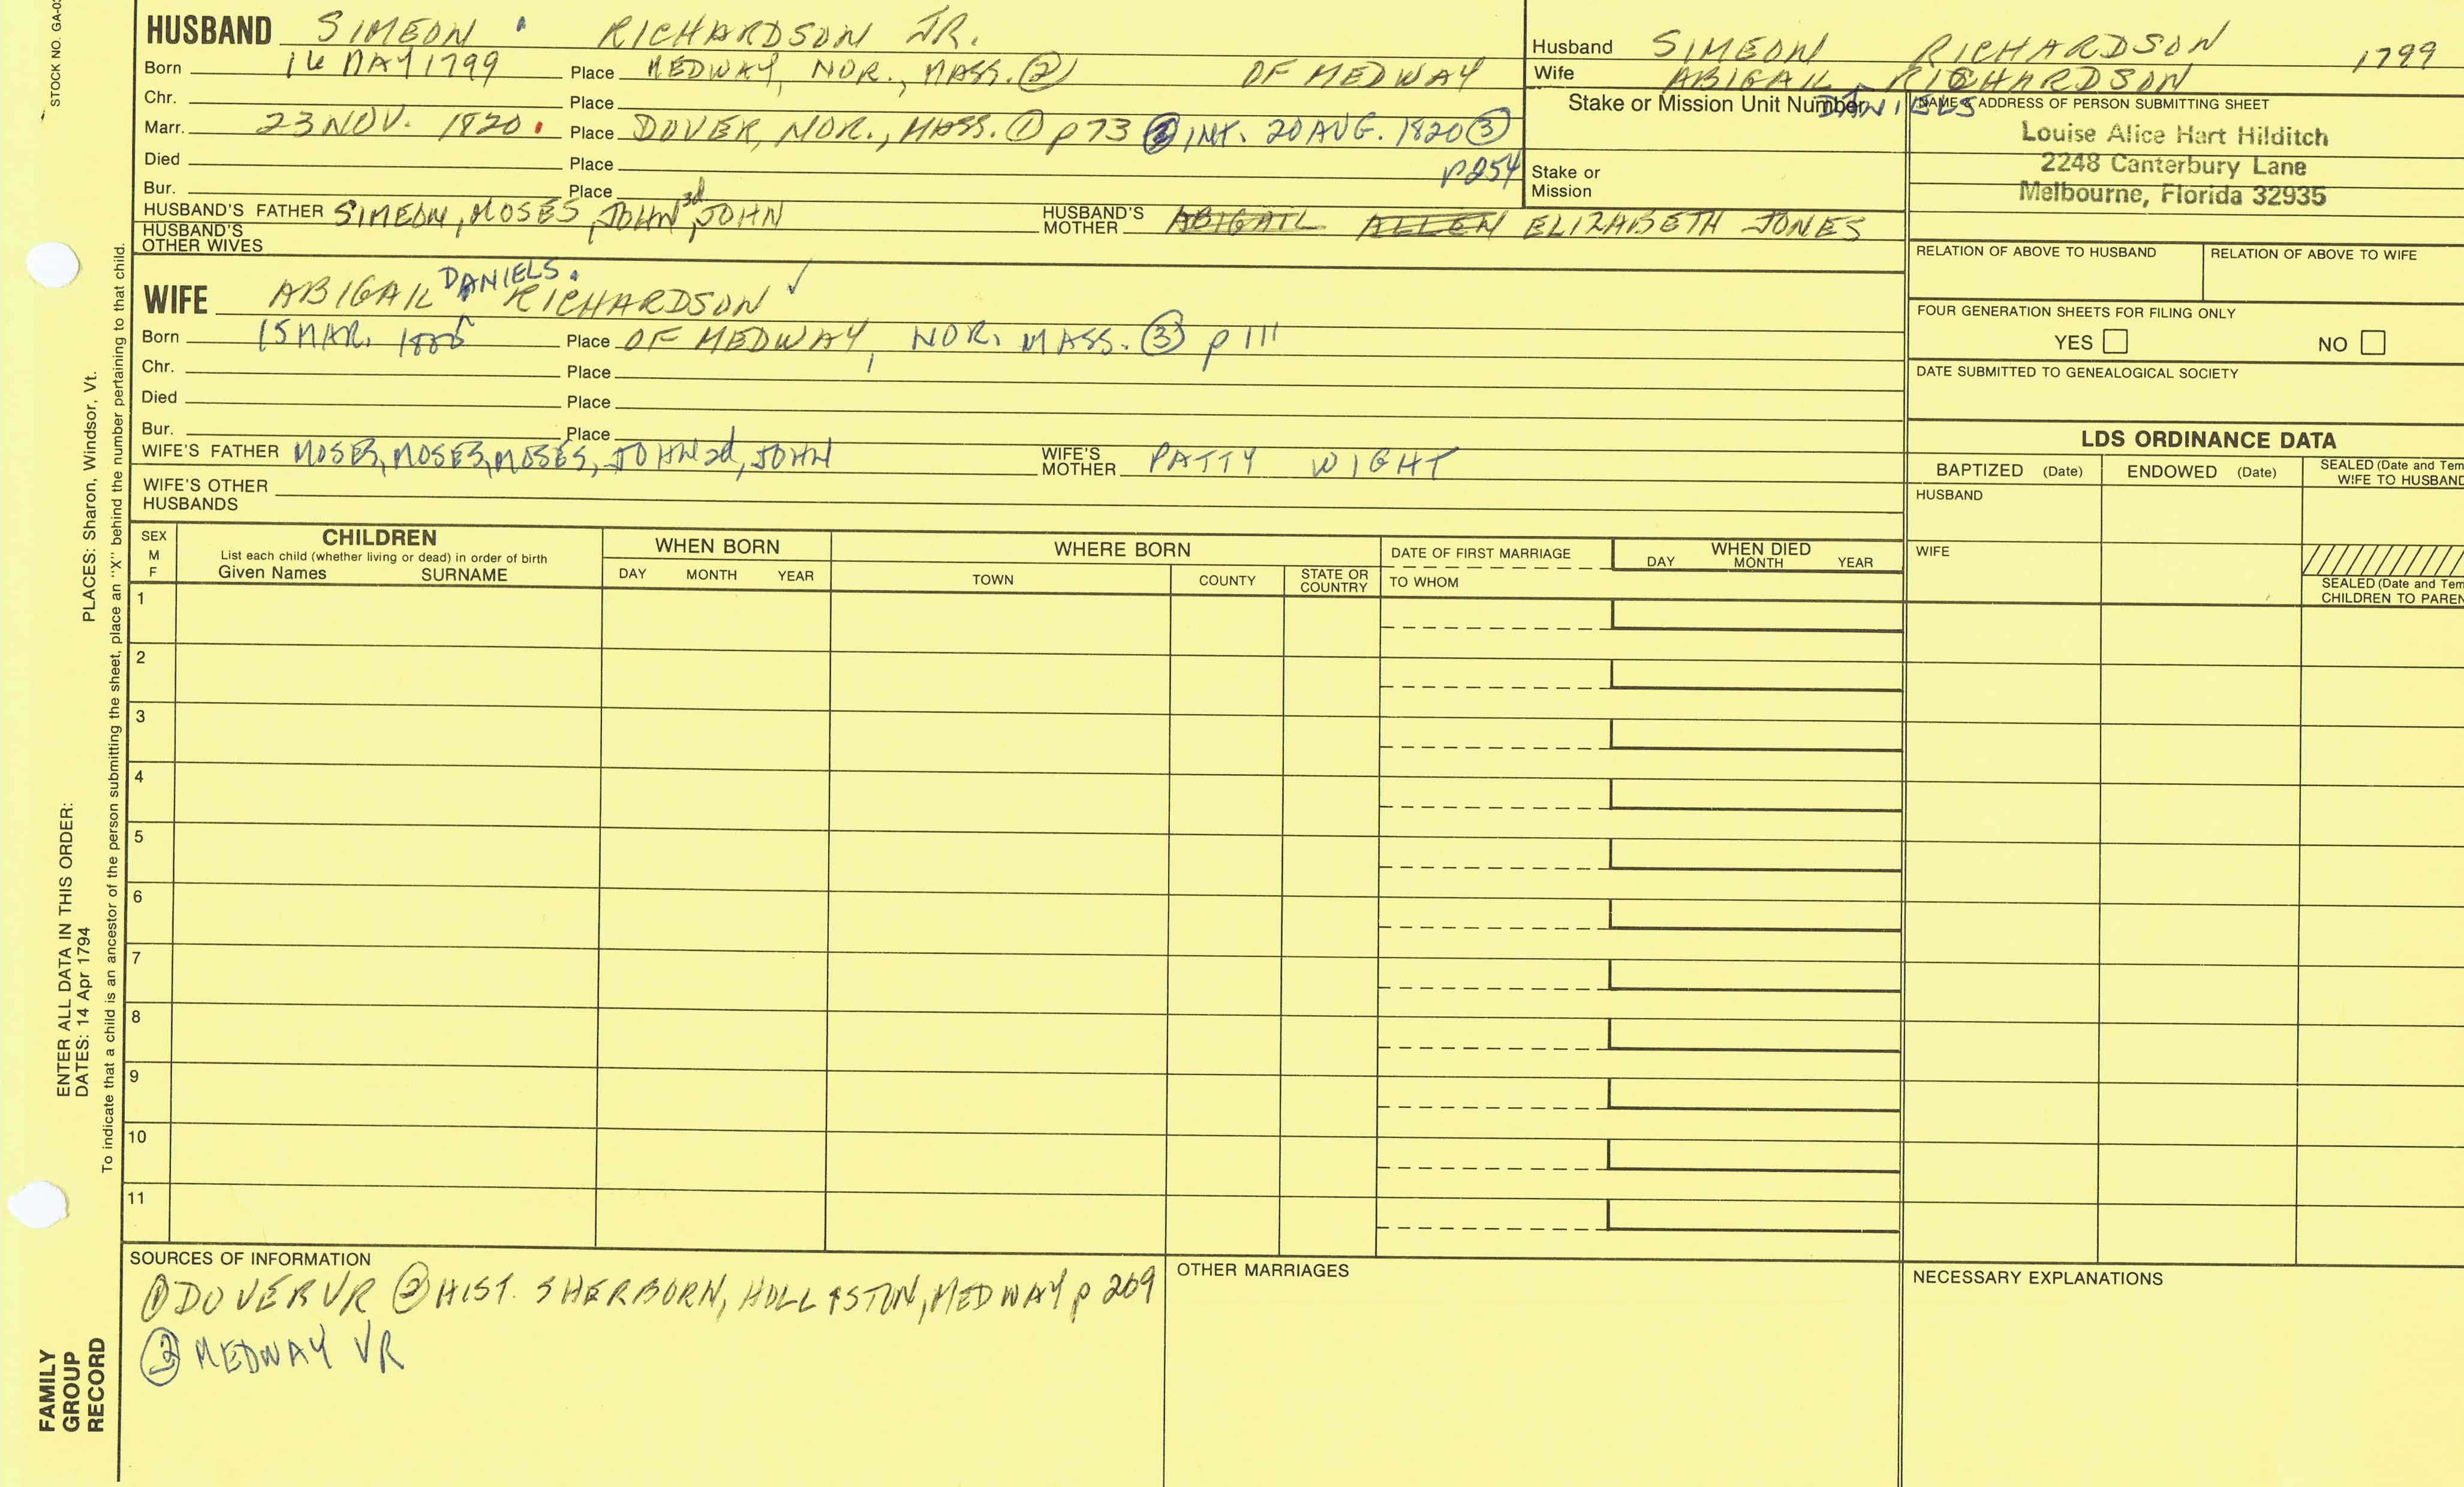 STOCK NO. GA-0
HUSBAND SIMEON RICHARDSON JR.
Born MAY 1799 Place MEDWAY, NOR., MASS. ② OF MEDWAY
Chr. Place
Marr. 23 NOV. 1820. Place DOVER, NOR., MASS. ① p 73 INT. 20 AUG. 1820 ③
p254
Died Place
Bur. Place
HUSBAND'S FATHER SIMEON, MOSES, JOHN 3d, JOHN HUSBAND'S MOTHER ABIGAIL ALLEN ELIZABETH JONES
HUSBAND'S OTHER WIVES
WIFE ABIGAIL DANIELS RICHARDSON ✓
Born 15 MAR. Place OF MEDWAY, NOR. MASS. ③ p 111
Chr. Place
Died Place
Bur. Place
WIFE'S FATHER MOSES, MOSES, MOSES, JOHN 2d, JOHN WIFE'S MOTHER PATTY WIGHT
WIFE'S OTHER HUSBANDS
Husband SIMEON RICHARDSON 1799
Wife ABIGAIL DANIELS RICHARDSON
Stake or Mission Unit Number
Stake or
Mission
NAME & ADDRESS OF PERSON SUBMITTING SHEET
Louise Alice Hart Hilditch
2248 Canterbury Lane
Melbourne, Florida 32935
RELATION OF ABOVE TO HUSBAND RELATION OF ABOVE TO WIFE
FOUR GENERATION SHEETS FOR FILING ONLY
YES NO
DATE SUBMITTED TO GENEALOGICAL SOCIETY
LDS ORDINANCE DATA
BAPTIZED (Date) ENDOWED (Date) SEALED (Date and Tem
WIFE TO HUSBAND
HUSBAND
WIFE
SEALED (Date and Tem
CHILDREN TO PAREN
SEX
M
F
CHILDREN
List each child (whether living or dead) in order of birth
Given Names SURNAME
WHEN BORN
DAY MONTH YEAR
WHERE BORN
TOWN COUNTY STATE OR COUNTRY
DATE OF FIRST MARRIAGE
TO WHOM
WHEN DIED
DAY MONTH YEAR
1
2
3
4
5
6
7
8
9
10
11
SOURCES OF INFORMATION
① DOVER VR ② HIST. SHERBORN, HOLLISTON, MEDWAY p 269
③ MEDWAY VR
OTHER MARRIAGES
NECESSARY EXPLANATIONS
ENTER ALL DATA IN THIS ORDER:
DATES: 14 Apr 1794 PLACES: Sharon, Windsor, Vt.
To indicate that a child is an ancestor of the person submitting the sheet, place an "X" behind the number pertaining to that child.
FAMILY
GROUP
RECORD